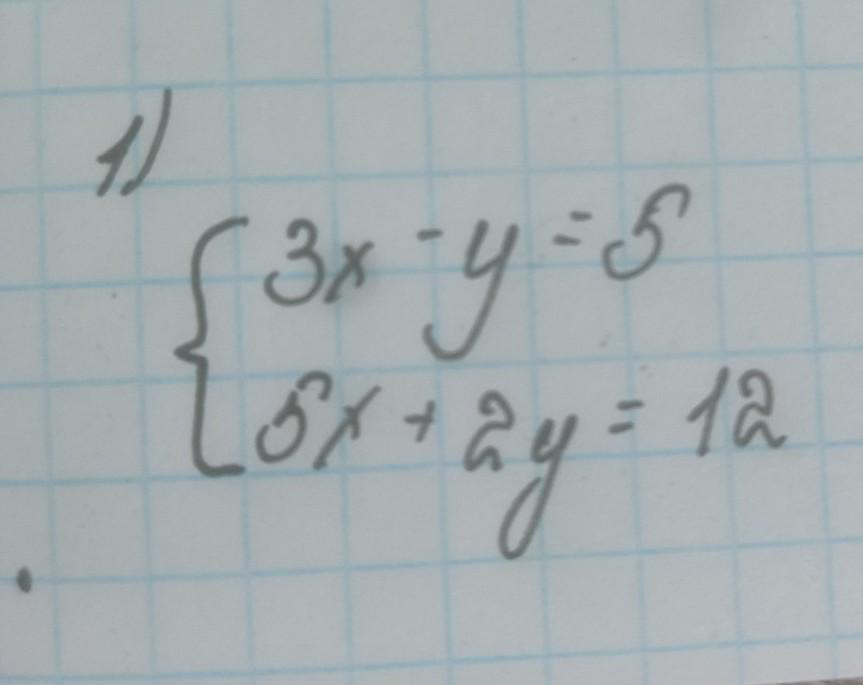 1)
3x - y = 5
5x + 2y = 12